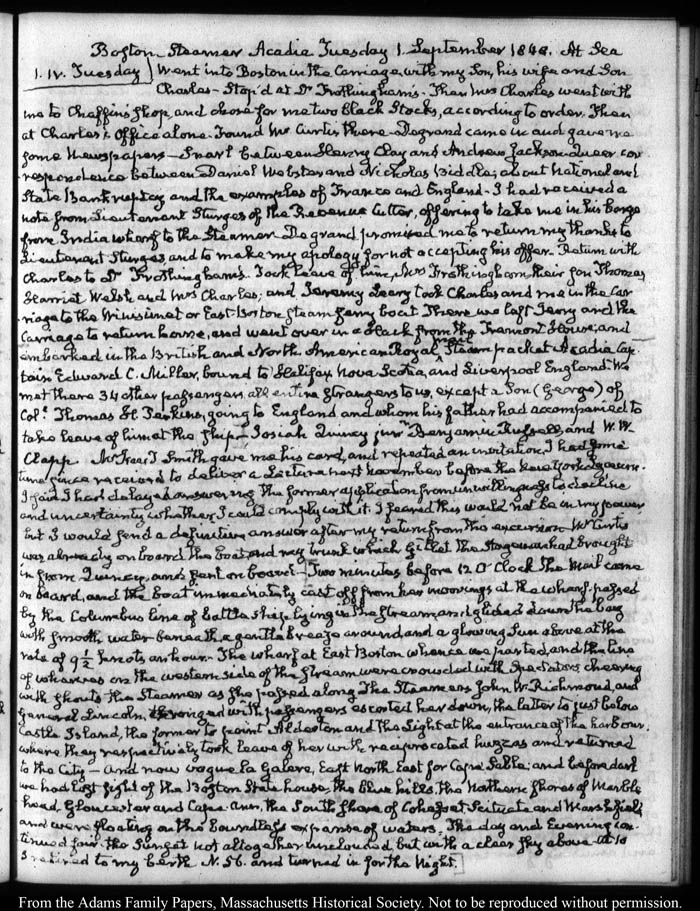 Boston Steamer Acadia Tuesday 1. September 1840. At Sea
1. IV. Tuesday Went into Boston in the Carriage, with my Son, his wife and Son
Charles - Stop'd at Dr Frothingham's. Then Mrs Charles went with
me to Chaffin's shop, and chose for me two Black Stocks, according to order. Then
at Charles's office alone. Found Mr Curtis there - Degrand came in and gave me
some Newspapers - Snarl between Henry Clay and Andrew Jackson. Queer cor
respondence between Daniel Webster and Nicholas Biddle, about National and
State Bankruptcy and the examples of France and England - I had received a
note from Lieutenant Sturges of the Revenue Cutter, offering to take me in his barge
from India wharf to the Steamer. Degrand promised me to return my thanks to
Lieutenant Sturges, and to make my apology for not accepting his offer. Return with
Charles to Dr Frothingham's. Took leave of him, Mrs Frothingham their son Thomas,
Harriet Welsh and Mrs Charles; and Jeremy Leary took Charles and me in the Car
riage to the Winnisimet or East-Boston Steam ferry boat. There we left Jerry and the
Carriage to return home, and went over in a Hack from the Tremont House; and
embarked in the British and North American Royal Mail Steam packet Acadia Cap
tain Edward C. Miller, bound to Halifax Nova Scotia, and Liverpool England. We
met there 34 other passengers all entire strangers to us, except a Son (George) of
Col. Thomas H. Perkins, going to England and whom his father had accompanied to
take leave of him at the ship - Josiah Quincy junr Benjamin Russell, and W. W.
Clapp. Mr J Smith gave me his card, and repeated an invitation I had some
time since received to deliver a Lecture next November before the New York Lyceum.
I said I had delayed answering the former application from unwillingness to decline
and uncertainty whether I could comply with it. I feared this would not be in my power
but I would send a definitive answer after my return from this excursion. Mr Curtis
was already on board the boat and my trunk which Gillet the Stageman had brought
in from Quincy, and sent on board - Two minutes before 12 O'Clock the Mail came
on board, and the boat immediately cast off from her moorings at the wharf, passed
by the Columbus line of battle ship lying in the stream and glided down the bay
with smooth water beneath a gentle breeze around and a glowing Sun above at the
rate of 9½ knots an hour. The wharf at East Boston whence we parted, and the line
of wharves on the western side of the stream were crowded with Spectators cheering
with shouts the Steamer as she passed along. The Steamers John W. Richmond, and
General Lincoln, thronged with passengers escorted her down, the latter to just below
Castle Island, the former to point Alderton and the Light at the entrance of the harbour,
where they respectively took leave of her with reciprocated huzzas and returned
to the City - And now vogue la Galere, East North East for Cape Sable; and before dark
we had lost sight of the Boston State house, the blue hills, the Northern shores of Marble
head, Gloucester and Cape-Ann, the South shore of Cohasset Scituate and Marshfield
and were floating on the boundless expanse of waters. The day and Evening con
tinued fair the Sunset not altogether unclouded but with a clear sky above. At 10
I retired to my berth N. 56. and turned in for the Night.
From the Adams Family Papers, Massachusetts Historical Society. Not to be reproduced without permission.